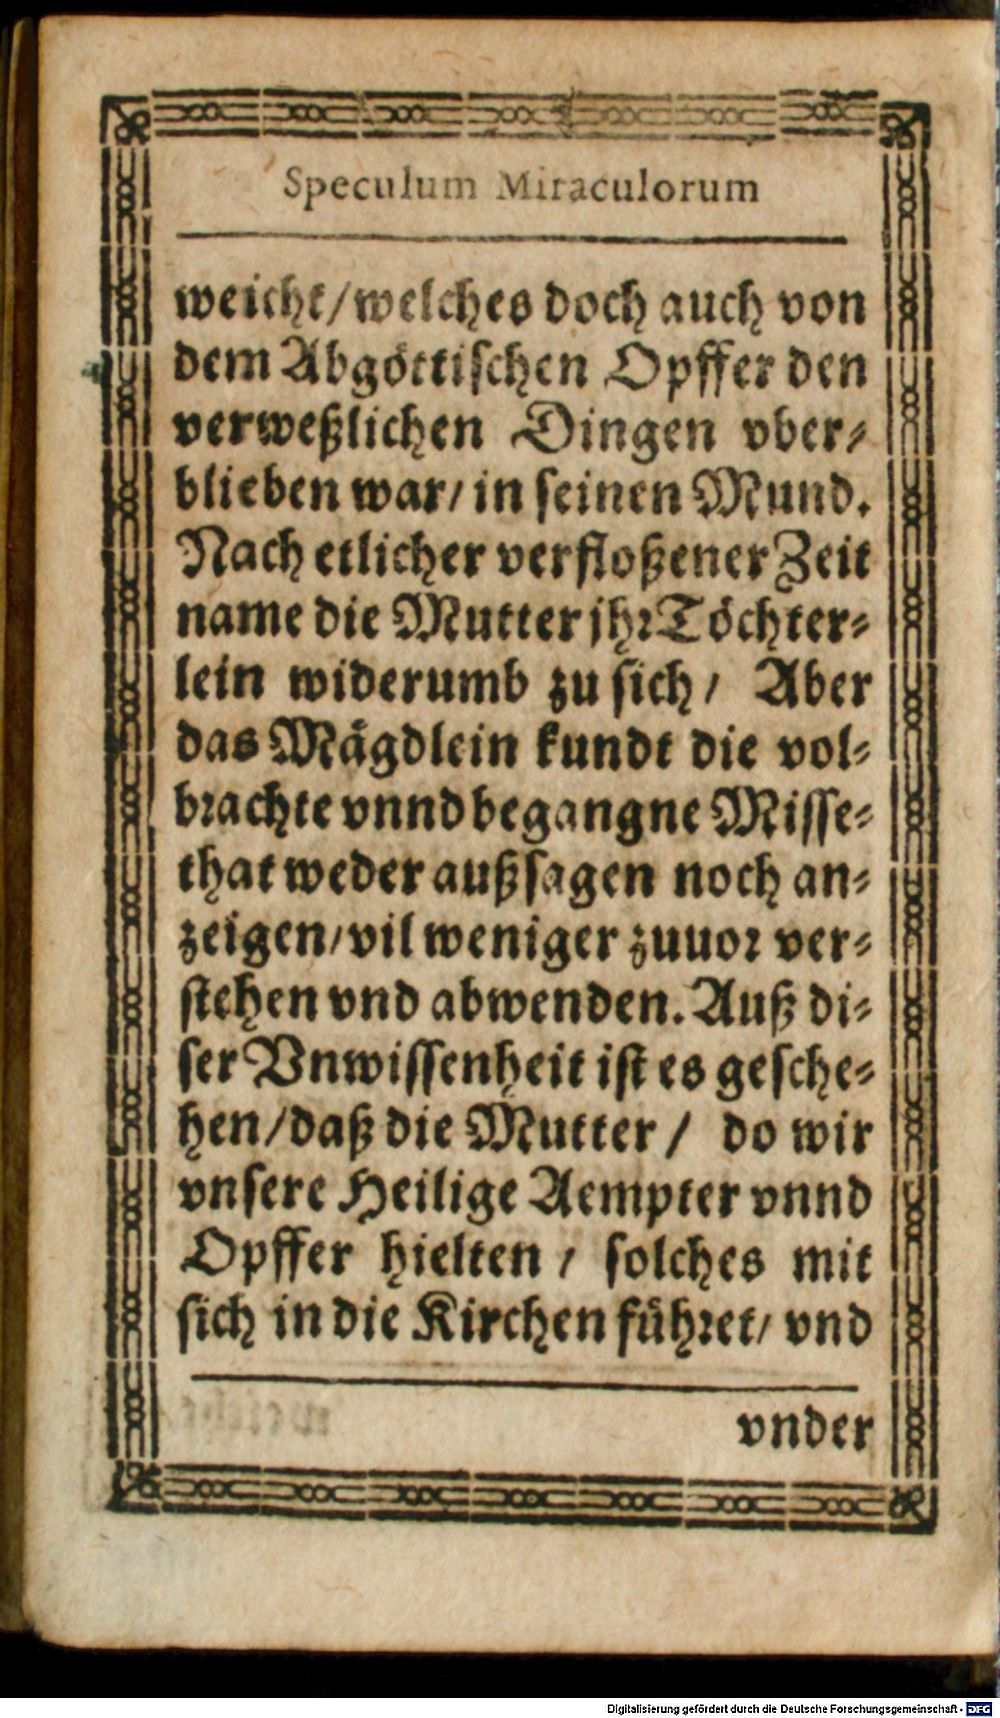 Speculum Miraculorum
weicht/welches doch auch von
dem Abgöttischen Opffer den
verweßlichen Dingen vber-
blieben war/ in seinen Mund.
Nach etlicher verfloßener Zeit
name die Mutter jhr Töchter-
lein widerumb zu sich/ Aber
das Mägdlein kundt die vol-
brachte vnnd begangne Misse-
that weder außsagen noch an-
zeigen/vil weniger zuuor ver-
stehen vnd abwenden. Auß di-
ser Vnwissenheit ist es gesche-
hen/daß die Mutter/ do wir
vnsere Heilige Aempter vnnd
Opffer hielten/ solches mit
sich in die Kirchen führet/ vnd
vnder
Digitalisierung gefördert durch die Deutsche Forschungsgemeinschaft - DFG